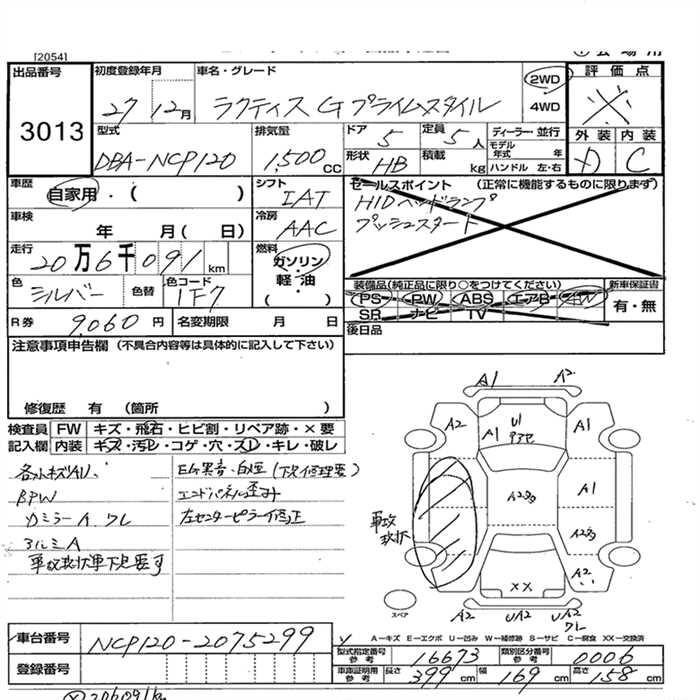 [2054]
出品番号
3013
初度登録年月
27 12月
車名・グレード
ラクティス G プライムスタイル
2WD
4WD
評価点
外装 内装
D C
型式
DBA-NCP120
排気量
1,500 CC
ドア 5
定員 5人
形状 HB
積載 kg
ディーラー・並行
モデル年式 年
ハンドル 左・右
車歴
自家用・( )
シフト
IAT
セールスポイント (正常に機能するものに限ります)
HIDヘッドランプ
プッシュスタート
車検
年 月( 日)
冷房
AAC
走行
20万6千091km
燃料
ガソリン・
軽・油
( )
色
シルバー
色替
色コード
1F7
装備品(純正品に限り○をつけてください)
PS PW ABS エアB AW
SR ナビ TV
新車保証書
有・無
後日品
R券 9,060円
名変期限 月 日
注意事項申告欄 (不具合内容等は具体的に記入して下さい)
修復歴 有 (箇所 )
検査員 FW キズ・飛石・ヒビ割・リペア跡・×要
記入欄 内装 キズ・汚レ・コゲ・穴・スレ・キレ・破レ
各小キズAU、
BPW
ワレ
アルミA
E/G異音・白煙(下欠修理要)
エンドパネル歪み
左センターピラー修正
A1 A2
A2 U1 A1
A1
A2
A1
A2
XX
A2
スペア
A2 UA2 UA2
ワレ
A－キズ E－エクボ U－凹み W－補修跡 S－サビ C－腐食 XX－交換済
車台番号
NCP120-2075299
登録番号
型式指定番号 参考 16673
類別区分番号 参考 0006
車庫証明用 参考
長さ 399cm
幅 169cm
高さ 158cm